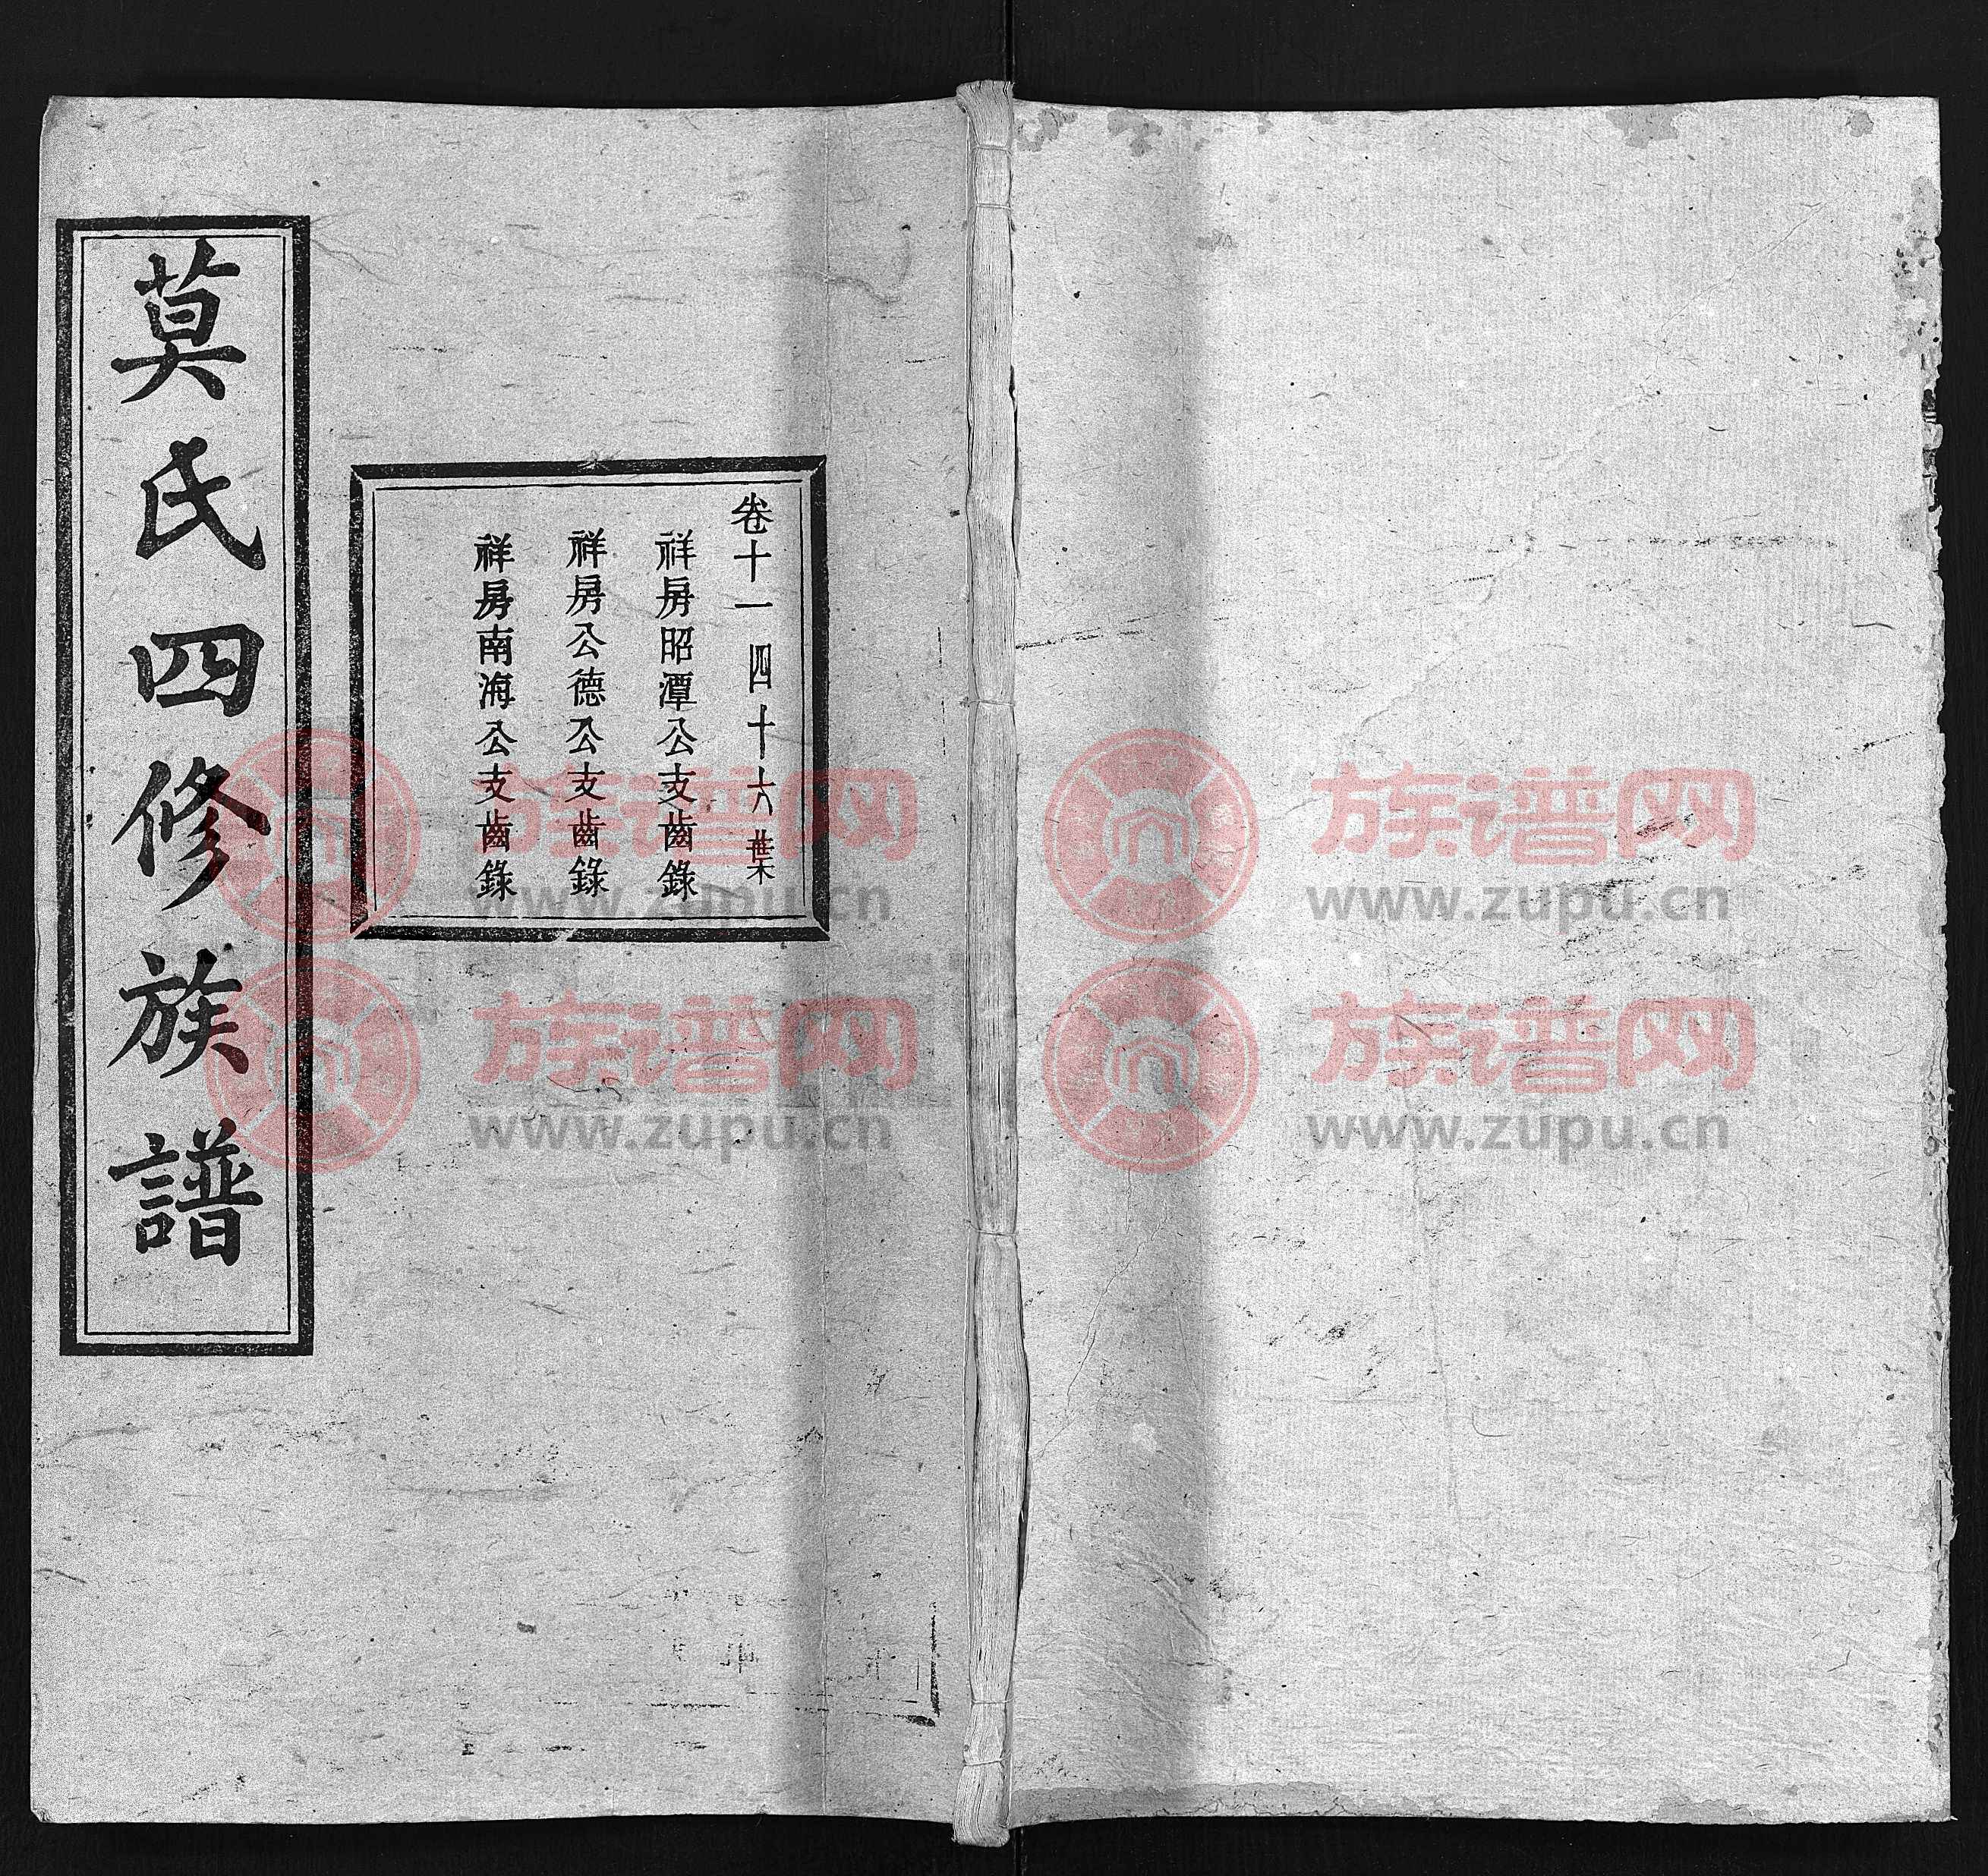 莫氏四修族譜
卷十一 四十六葉
祥房昭潭公支齒錄
祥房公德公支齒錄
祥房南海公支齒錄
族谱网
www.zupu.cn
族谱网
www.zupu.cn
族谱网
www.zupu.cn
族谱网
www.zupu.cn